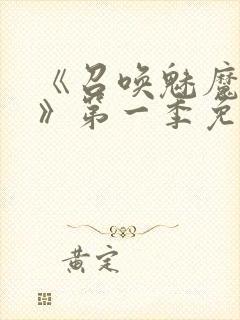 《召唤魅魔
》第一季免
黄定